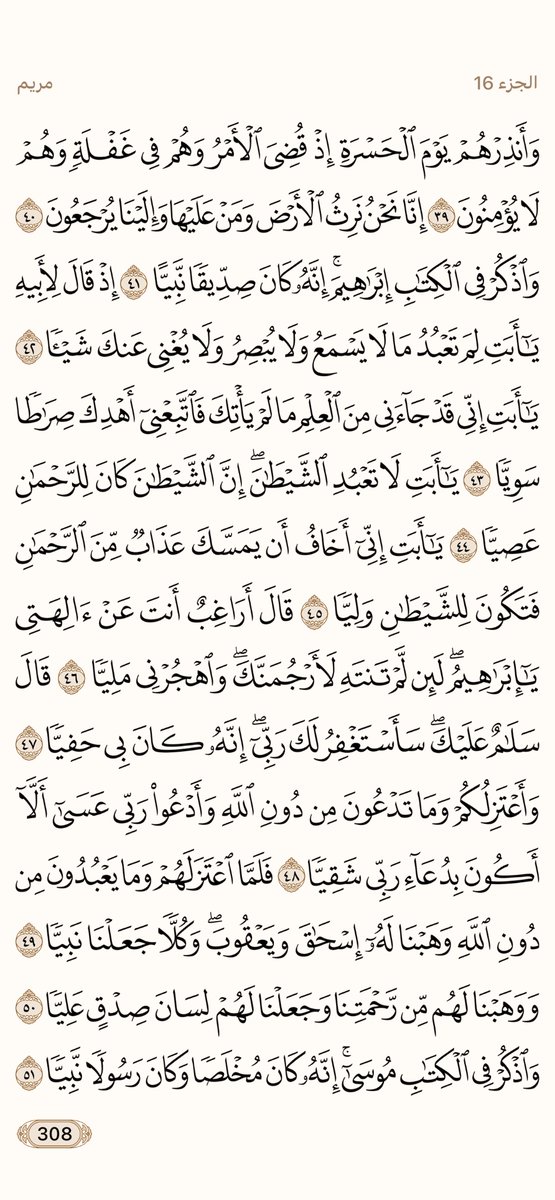 الجزء 16
مريم
وَأَنذِرْهُمْ يَوْمَ ٱلْحَسْرَةِ إِذْ قُضِىَ ٱلْأَمْرُ وَهُمْ فِى غَفْلَةٍ وَهُمْ
لَا يُؤْمِنُونَ ٣٩ إِنَّا نَحْنُ نَرِثُ ٱلْأَرْضَ وَمَنْ عَلَيْهَا وَإِلَيْنَا يُرْجَعُونَ ٤٠
وَٱذْكُرْ فِى ٱلْكِتَٰبِ إِبْرَٰهِيمَ ۚ إِنَّهُۥ كَانَ صِدِّيقًا نَّبِيًّا ٤١ إِذْ قَالَ لِأَبِيهِ
يَٰٓأَبَتِ لِمَ تَعْبُدُ مَا لَا يَسْمَعُ وَلَا يُبْصِرُ وَلَا يُغْنِى عَنكَ شَيْـًٔا ٤٢
يَٰٓأَبَتِ إِنِّى قَدْ جَآءَنِى مِنَ ٱلْعِلْمِ مَا لَمْ يَأْتِكَ فَٱتَّبِعْنِىٓ أَهْدِكَ صِرَٰطًا
سَوِيًّا ٤٣ يَٰٓأَبَتِ لَا تَعْبُدِ ٱلشَّيْطَٰنَ ۖ إِنَّ ٱلشَّيْطَٰنَ كَانَ لِلرَّحْمَٰنِ
عَصِيًّا ٤٤ يَٰٓأَبَتِ إِنِّىٓ أَخَافُ أَن يَمَسَّكَ عَذَابٌ مِّنَ ٱلرَّحْمَٰنِ
فَتَكُونَ لِلشَّيْطَٰنِ وَلِيًّا ٤٥ قَالَ أَرَاغِبٌ أَنتَ عَنْ ءَالِهَتِى
يَٰٓإِبْرَٰهِيمُ ۖ لَئِن لَّمْ تَنتَهِ لَأَرْجُمَنَّكَ ۖ وَٱهْجُرْنِى مَلِيًّا ٤٦ قَالَ
سَلَٰمٌ عَلَيْكَ ۖ سَأَسْتَغْفِرُ لَكَ رَبِّىٓ ۖ إِنَّهُۥ كَانَ بِى حَفِيًّا ٤٧
وَأَعْتَزِلُكُمْ وَمَا تَدْعُونَ مِن دُونِ ٱللَّهِ وَأَدْعُوا۟ رَبِّى عَسَىٰٓ أَلَّآ
أَكُونَ بِدُعَآءِ رَبِّى شَقِيًّا ٤٨ فَلَمَّا ٱعْتَزَلَهُمْ وَمَا يَعْبُدُونَ مِن
دُونِ ٱللَّهِ وَهَبْنَا لَهُۥٓ إِسْحَٰقَ وَيَعْقُوبَ ۖ وَكُلًّا جَعَلْنَا نَبِيًّا ٤٩
وَوَهَبْنَا لَهُم مِّن رَّحْمَتِنَا وَجَعَلْنَا لَهُمْ لِسَانَ صِدْقٍ عَلِيًّا ٥٠
وَٱذْكُرْ فِى ٱلْكِتَٰبِ مُوسَىٰٓ ۚ إِنَّهُۥ كَانَ مُخْلَصًا وَكَانَ رَسُولًا نَّبِيًّا ٥١
308